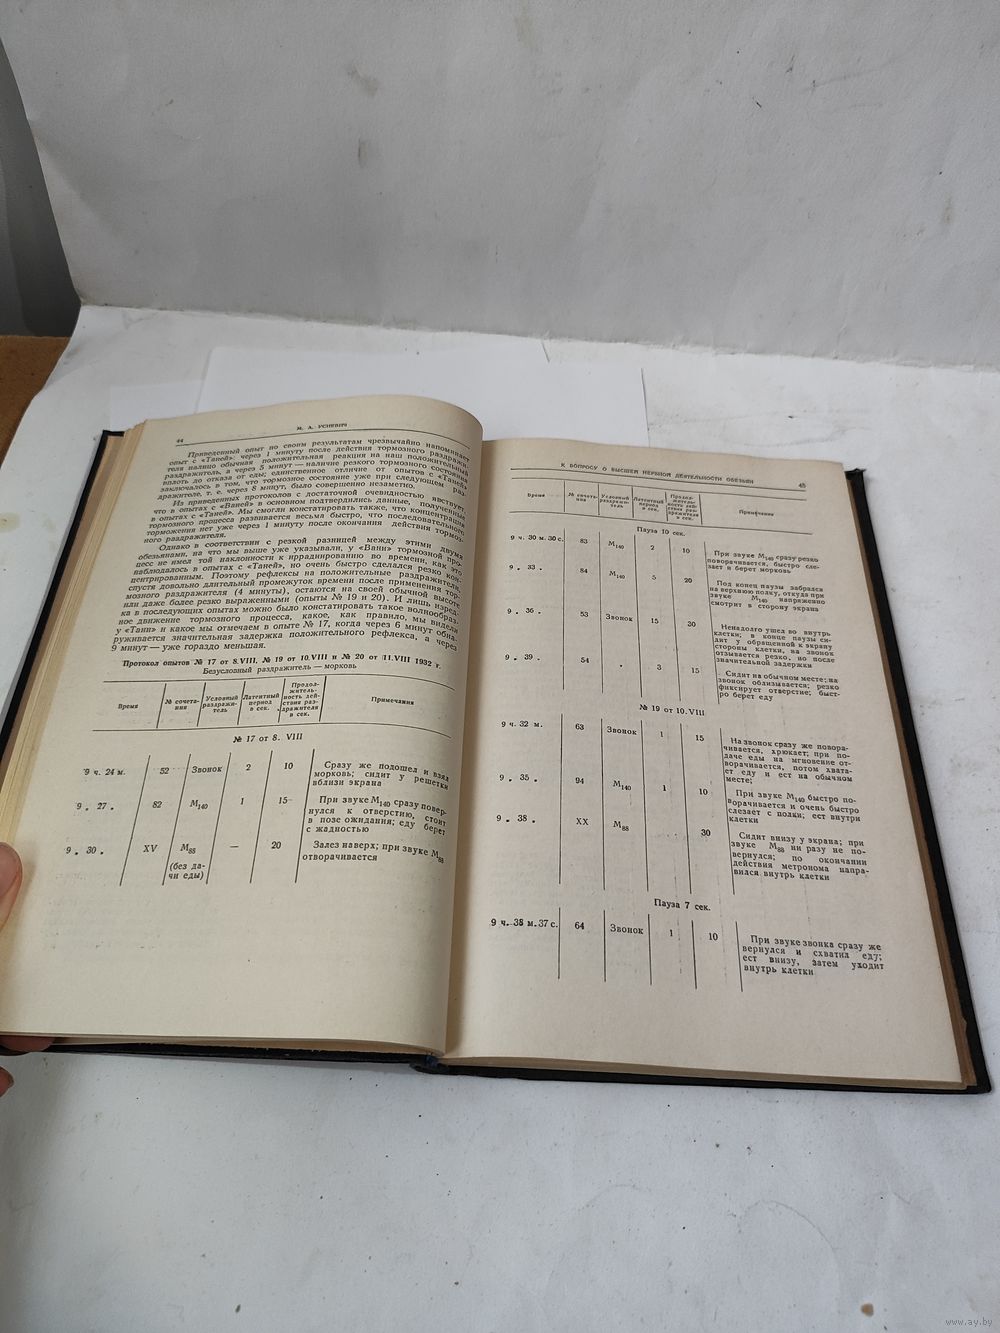 44
М. А. УСИЕВИЧ
Приведенный опыт по своим результатам чрезвычайно напоминает
опыт с «Таней»: через 1 минуту после действия тормозного раздражи-
теля налицо обычная положительная реакция на наш положительный
раздражитель, а через 5 минут — наличие резкого тормозного состояния
вплоть до отказа от еды; единственное отличие от опытов с «Таней»
заключалось в том, что тормозное состояние уже при следующем раз-
дражителе, т. е. через 8 минут, было совершенно незаметно.
Из приведенных протоколов с достаточной очевидностью явствует,
что в опытах с «Ваней» в основном подтвердились данные, полученные
в опытах с «Таней». Мы смогли констатировать также, что концентрация
тормозного процесса развивается весьма быстро, что последовательного
торможения нет уже через 1 минуту после окончания действия тормоз-
ного раздражителя.
Однако в соответствии с резкой разницей между этими двумя
обезьянами, на что мы выше уже указывали, у «Вани» тормозной про-
цесс не имел той наклонности к иррадиированию во времени, как это
наблюдалось в опытах с «Таней», но очень быстро сделался резко кон-
центрированным. Поэтому рефлексы на положительные раздражители,
спустя довольно длительный промежуток времени после применения тор-
мозного раздражителя (4 минуты), остаются на своей обычной высоте
или даже более резко выраженными (опыты № 19 и 20). И лишь изред-
ка в последующих опытах можно было констатировать такое волнообраз-
ное движение тормозного процесса, какое, как правило, мы видели
у «Тани» и какое мы отмечаем в опыте № 17, когда через 6 минут обна-
руживается значительная задержка положительного рефлекса, а через
9 минут — уже гораздо меньшая.
Протокол опытов № 17 от 8.VIII, № 19 от 10.VIII и № 20 от 11.VIII 1932 г.
Безусловный раздражитель — морковь
Время
№ сочета-
ния
Условный
раздражи-
тель
Латентный
период
в сек.
Продол-
житель-
ность дей-
ствия раз-
дражителя
в сек.
Примечания
№ 17 от 8. VIII
9 ч. 24 м. 52 Звонок 2 10 Сразу же подошел и взял
морковь; сидит у решетки
вблизи экрана
9 „ 27 „ 82 М140 1 15 При звуке М140 сразу повер-
нулся к отверстию, стоит
в позе ожидания; еду берет
с жадностью
9 „ 30 „ XV М88 — 20 Залез наверх; при звуке М88
(без да- отворачивается
чи еды)
К ВОПРОСУ О ВЫСШЕЙ НЕРВНОЙ ДЕЯТЕЛЬНОСТИ ОБЕЗЬЯН
45
Время
№ сочета-
ния
Условный
раздражи-
тель
Латентный
период
в сек.
Продол-
житель-
ность дей-
ствия раз-
дражителя
в сек.
Примечания
Пауза 10 сек.
9 ч. 30 м. 30 с. 83 М140 2 10 При звуке М140 сразу резко
поворачивается, быстро сле-
зает и берет морковь
9 „ 33 „ 84 М140 5 20 Под конец паузы забрался
на верхнюю полку, откуда при
звуке М140 напряженно
смотрит в сторону экрана
9 „ 36 „ 53 Звонок 15 30 Ненадолго ушел во внутрь
клетки; в конце паузы си-
дит у обращенной к экрану
стороны клетки, на звонок
отзывается резко, но после
значительной задержки
9 „ 39 „ 54 „ 3 15 Сидит на обычном месте; на
звонок облизывается; резко
фиксирует отверстие; быст-
ро берет еду
№ 19 от 10.VIII
9 ч. 32 м. 63 Звонок 1 15 На звонок сразу же повора-
чивается, хрюкает; при по-
даче еды на мгновение от-
ворачивается, потом хвата-
ет еду и ест на обычном
месте;
9 „ 35 „ 94 М140 1 10 При звуке М140 быстро по-
ворачивается и очень быстро
слезает с полки; ест внутри
клетки
9 „ 38 „ XX М88 30 Сидит внизу у экрана; при
звуке М88 ни разу не по-
вернулся; по окончании
действия метронома напра-
вился внутрь клетки
Пауза 7 сек.
9 ч. 38 м. 37 с. 64 Звонок 1 10 При звуке звонка сразу же
вернулся и схватил еду;
ест внизу, затем уходит
внутрь клетки
www.ay.by